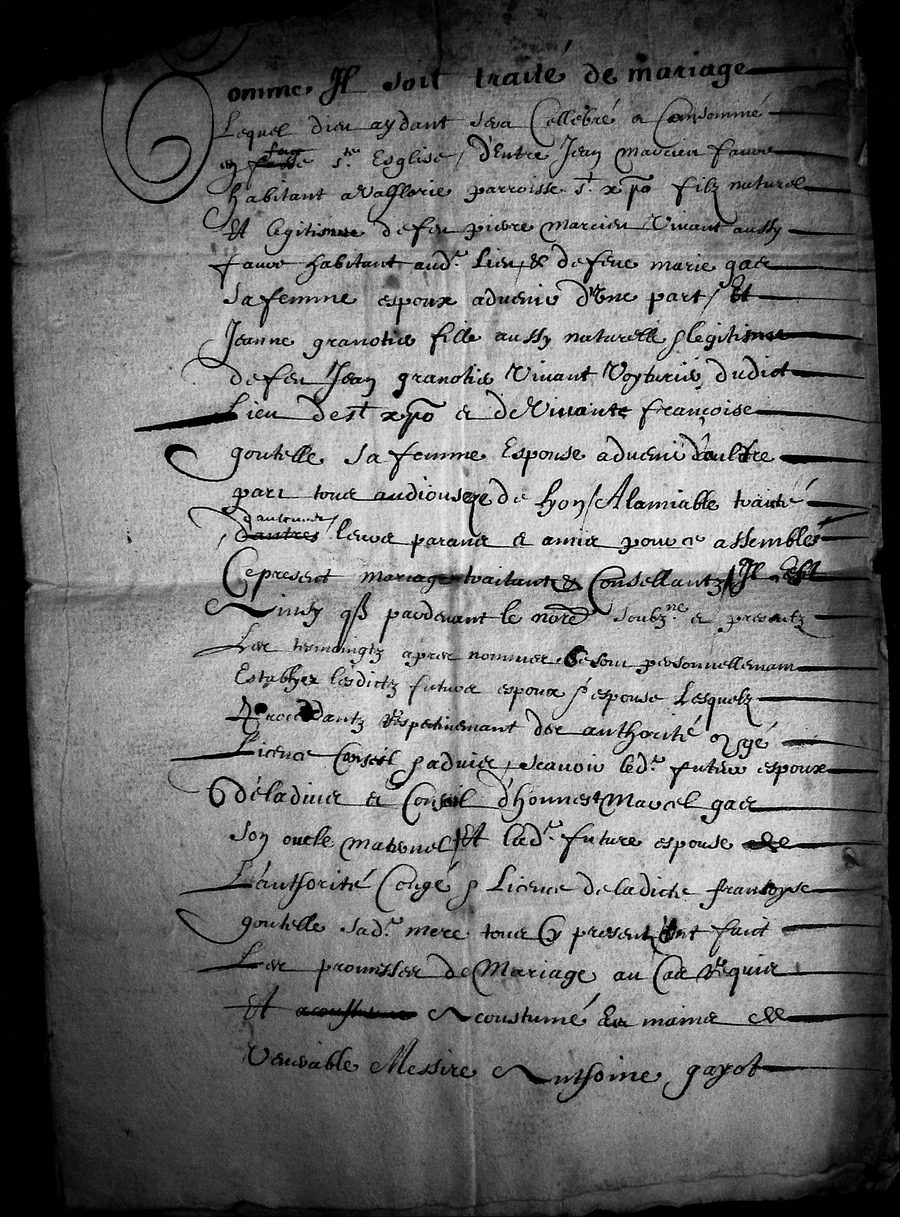 Comme Il soit traité de mariage
Lequel dieu aydant sera Cellebré et Consommé
en s.te Esglise, D'Entre Jean marcieu faure
habitant a Valflorie parroisse s.t xpō filz naturel
Et legitisme de feu pierre marcieu Vivant aussy
faure habitant aud.t Lieu, & de feue marie gaer
Sa femme espoux advenir d'Une part / Et
Jeanne granotier fille aussy naturelle & legitisme
de feu Jean granotier Vivant Voyturier dudict
Lieu de st xpō et de Vivante françoise
goutelle Sa femme Espouse advenir d'aultre
part tous au de Lyon / A lamiable traité
leurs parans et amis pour ce assemblés
Ce present mariage traitant & Consellantz / Il Est
Ainsy q̄ pardevant le nōre Soubz.ne et presentz
Les tesmoingtz apres nommes se sont personnellemant
Establyes lesdictz futurs espoux & espouse Lesquelz
Procedantz Respectivemant des authorité Congé
Licence Conseil & advis, Scavoir led.t futur espoux
de ladvis et Conseil d'honneste Marcel gaer
Son oncle maternel, Et lad.te future espouse de
L'authorité Congé & Licence de ladicte françoyse
goutelle Sad.te mere tous Cy present Ont faict
Les promesses de Mariage au Cas Requis
Et Acoustumé Es mains de
Venerable Messire Anthoine gayot